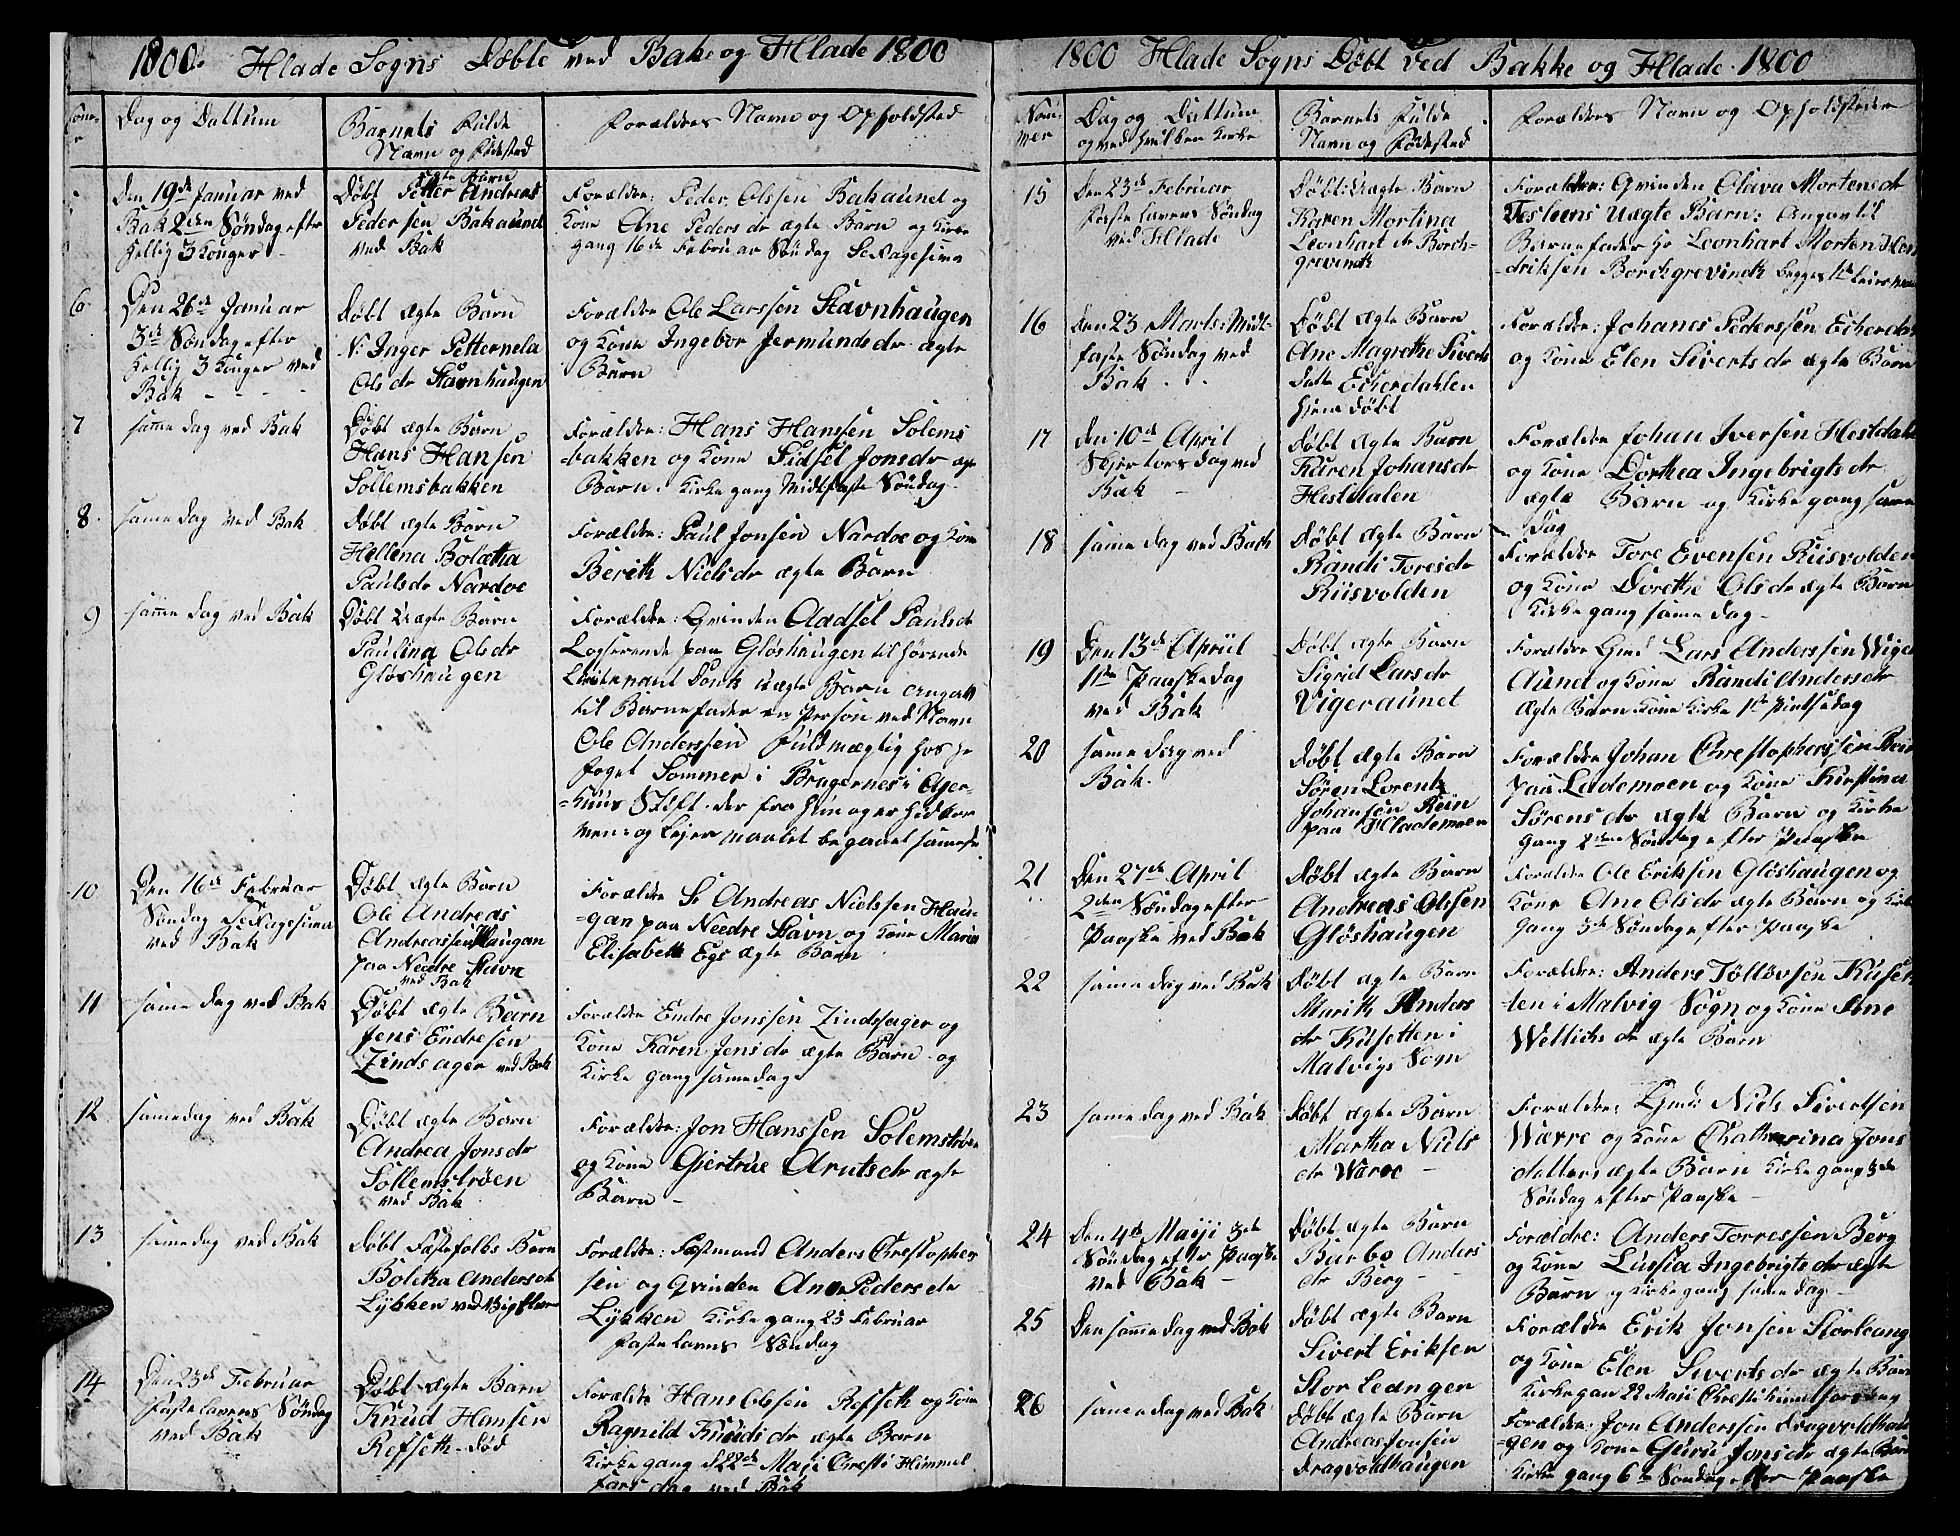 1800. Hlade Sogns Døbte ved Bake og Hlade 1800
Dag og Dattum
Barnets Fulde
Navn og Fødested
Forældres Navn og Opholdsted
Den 19de Januar ved
Bak 2den Søndag efter
Hellig 3 Konger -
Døbt ægte Barn
Petter Andreas
Pedersen Bakaunet
ved Bak
Forældre: Peder Olssen Bakaunet og
Kone Ane Peders dr ægte Barn og Kirke
gang 16de Februar Søndag Sexagesima
6
Den 26de Januar
3de Søndag efter
Hellig 3 Konger ved
Bak - - -
Døbt ægte Barn
N: Inger Petternela
Ols dr Stavnhaugen
Forældre Ole Larssen Stavnhaugen
og Kone Ingebor Jermunds dr ægte
Barn
7
samme dag ved Bak
Døbt ægte Barn
Hans Hansen
Sollemsbakken
Forældre: Hans Hanssen Solems
bakken og Kone Sidsel Jonsdr ægte
Barn. Kirkegang Midtfaste Søndag
8.
samme dag ved Bak
Døbt ægte Barn
Hellena Bolætha
Paulsdr Nardoe
Forældre: Paul Jonsen Nardoe og Kone
Berith Nielsdr ægte Barn
9
samme dag ved Bak
Døbt Uægte Barn
Paulina Olsdr
Gløshaugen
Forældre: Qvinden Aadsel Paulsdr
Logerende paa Gløshaugen tilhørende
Leutenant Donk uægte Barn angatt
til Barnefader en Person ved Navn
Ole Anderssen Fuldmægtig hos Hr
Foget Sommer i Bragernes i Ager-
-huus Stift. der fra hun og er hidkom
men: og Leiermaalet begaaet samesti
10
Den 16de Februar
Søndag Sexagesima
ved Bak
Døbt ægte Barn
Ole Andreas
Andreassen Haugan
paa Nedre Stavn
ved Bak
Forældre Sr Andreas Nielssen Hau-
-gan paa Needre Stavn og Kone Maria
Elisabeth Egs ægte Barn
11
same dag ved Bak
Døbt ægte Barn
Jens Endresen
Zindsager ved Bak
Forældre Endre Jonssen Zindsager og
Kone Karen Jensdr ægte Barn og
Kirkegang samedag
12
same dag ved Bak
Døbt ægte Barn
Andrea Jonsdr
Sollemstrøen
ved Bak
Forældre: Jon Hanssen Solemstrøen
og Kone Giertrue Arntsdr ægte
Barn -
13
same dag ved Bak
Døbt Fæstefolks Barn
Boletha Andersdr
Lykken ved
Forældre: Fæstmand Anders Chrestopher
sen og Qvinden Ane Pedersdr
Lykken Kirkegang 23 Februar
Faste Lavns Søndag
14
Den 23de Februar
Faste Lavens Søndag
ved Bak
Døbt ægte Barn
Knud Hansen
Refseth - død
Forældre Hans Olssen Refseth og Kone
Ragnild Knudsdr ægte Barn
Kirkegang d 22de Maji Chresti Himmel
farsdag ved Bak
1800 Hlade Sogns Døbt ved Bakke og Hlade. 1800
Num-
mer
Dag og Dattum
og ved hvilken Kirke
Barnets Fulde
Navn og Fødested
Forældres Navn og Opholdsteder
15
Den 23de Februar
Faste Lavens Søndag
ved Hlade
Døbt: Uægte Barn
Karen Mortina
Leonhart dr Borch-
grevinck
Forældre: Qvinden Olava Mortensdr
Tesleens Uægte Barn: Angav til
Barnefader Hr Leonhart Morten Hen
-driksen Borchgrevinck begges 1te Leiermaal
16
den 23 Marts: Midt-
faste Søndag ved
Bak . .
Døbt ægte Barn
Ane Magrethe Siverts
datt Eiherdahlen
hiemdøbt
Forældre: Johanes Pederssen Eiherdal
og Kone Elen Sivertsdr ægte Barn
17
den 10de April
Skiertorsdag ved
Bak -
Døbt ægte Barn
Karen Johansdr
Hestdalen
Forældre Johan Iversen Hestdalen
og Kone Dorthea Ingebrigtsdr
ægte Barn og Kirkegang same
dag
18
same dag ved Bak
Døbt ægte Barn
Randi Toresdr
Riisvolden
Forældre Tore Evensen Riisvolden
og Kone Dorethe Olsdr ægte Barn
Kirkegang same dag -
19
Den 13de Apriil
1ste Paaskedag
ved Bak
Døbt ægte Barn
Sigrid Larsdr
Vigeraunet
Forældre Gmd Lars Anderssen Wiger
Aunet og Kone Randi Andersdr
ægte Barn Kone Kirke 1ste Pintsedag
20
same dag ved
Bak.
Døbt ægte Barn
Søren Lorentz
Johansen Rein
paa Hlademoen
Forældre Johan Chrestopherssen Rein
paa Lademoen og Kone Kirstina
Sørensdr ægte Barn og Kirke
gang 2den Søndag efter Paaske
21
Den 27de April
2den Søndag efter
Paaske ved Bak
Døbt ægte Barn
Andreas Olssen
Gløshaugen
Forældre Ole Eriksen Gløshaugen og
Kone Ane Olsdr ægte Barn og Kirke
gang 3de Søndag efter Paaske
22
same dag ved Bak
Døbt ægte Barn
Marith Anders
dr Kusetten i
Malvigs Sogn
Forældre: Anders Tølløvsen Kuset
ten i Malvig Sogn og Kone Ane
Wellichsdr ægte Barn
23
same dag ved Bak
Døbt ægte Barn
Martha Niels
dr Værre -
Forældre: Gmd: Niels Sivertsen
Wærre og Kone Chatharina Jons
datters ægte Barn Kirkegang 3de
Søndag efter Paaske -
24
Den 4de Maji 3de
Søndag efter Paaske
ved Bak -
Døbt ægte Barn
Barbo Anders
dr Berg -
Forældre: Anders Torressen Berg
og Kone Lussia Ingebrigtsdr ægte
Barn og Kirkegang same dag -
25
Den same dag ved Bak
Døbt ægte Barn
Sivert Eriksen
Stor Leangen
Forældre Erik Jonsen Storleang
og Kone Elen Sivertsdr ægte Barn
Kirkegan 22 Maii Chresti himelfarsdag
26
same dag ved Bak
Døbt ægte Barn
Andreas Jonsen
Dragvoldhaugen
Forældre: Jon Anderssen Dragvoldhau
-gen og Kone Guru Jonsdr ægte Barn
Kirkegang 6te Søndag efter Paaske